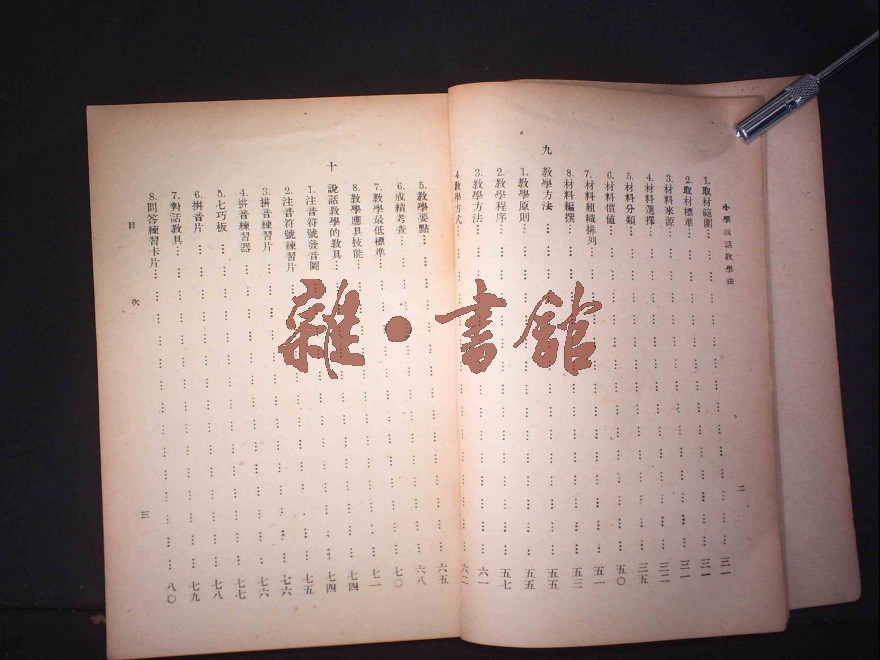 小學說話教學法
二
1.取材範圍…………三一
2.取材標準…………三一
3.材料來源…………三一
4.材料選擇…………三二
5.材料分類…………三五
6.材料價值…………五〇
7.材料組織排列…………五一
8.材料編撰…………五三
九 教學方法…………五五
1.教學原則…………五五
2.教學程序…………五七
3.教學方法…………六一
4.教學方式…………六二
5.教學要點…………六五
6.成績考查…………六八
7.教學最低標準…………七〇
8.教學應具技能…………七一
十 說話教學的教具…………七四
1.注音符號發音圖…………七四
2.注音符號練習片…………七五
3.拼音練習片…………七六
4.拼音練習器…………七六
5.七巧板…………七七
6.拼音片…………七八
7.對話教具…………七九
8.問答練習卡片…………八〇
目次
三
雜·書館